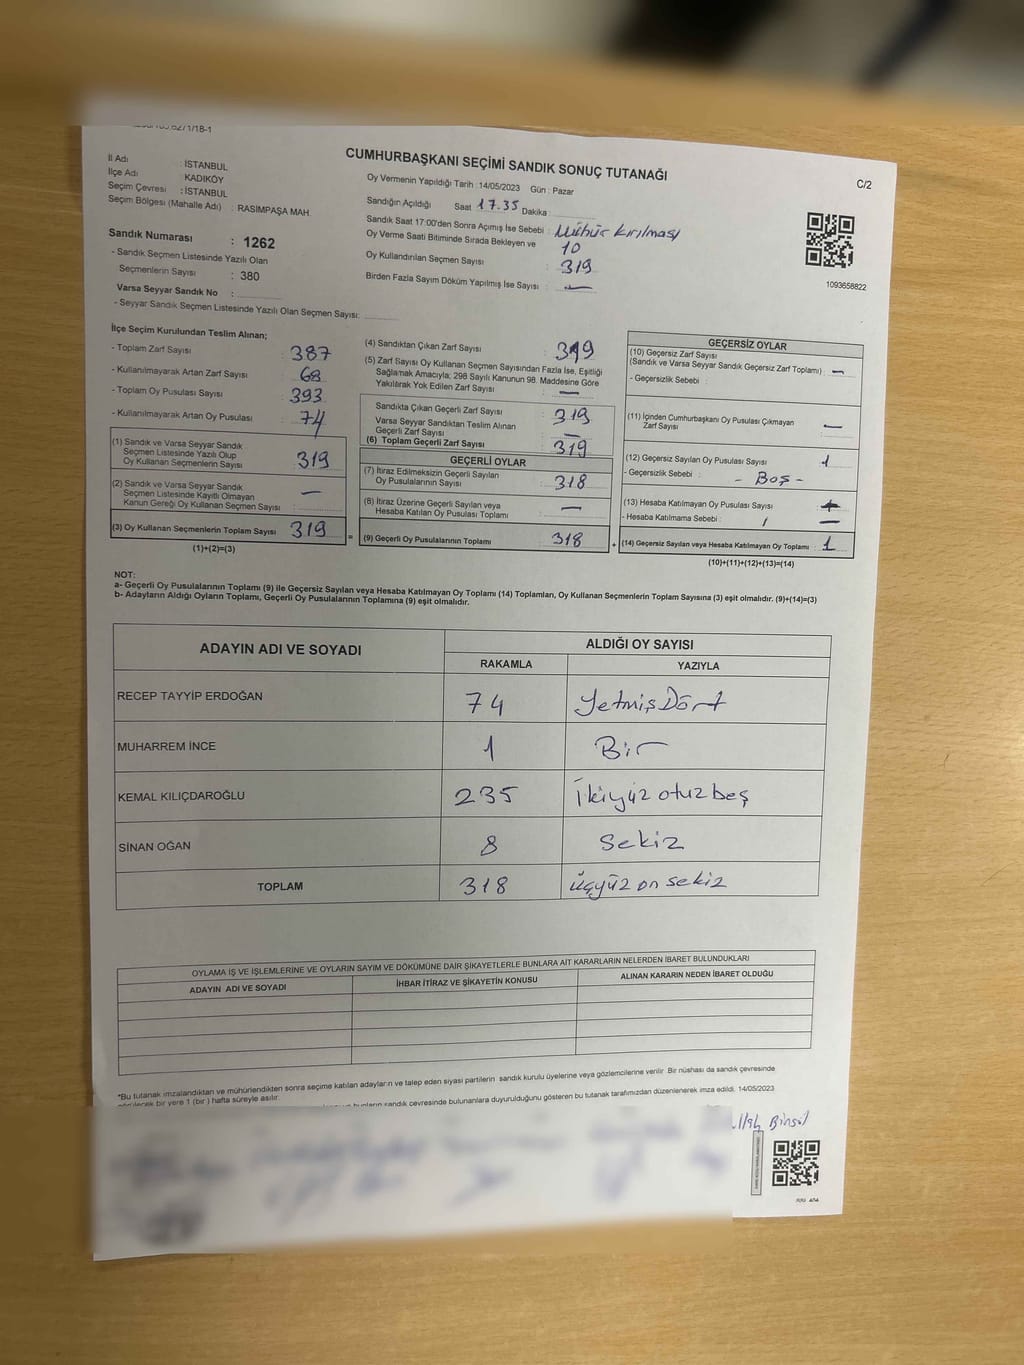 CUMHURBAŞKANI SEÇİMİ SANDIK SONUÇ TUTANAĞI
C/2
İl Adı : İSTANBUL
İlçe Adı : KADIKÖY
Seçim Çevresi : İSTANBUL
Seçim Bölgesi (Mahalle Adı) : RASİMPAŞA MAH.
Sandık Numarası : 1262
- Sandık Seçmen Listesinde Yazılı Olan
Seçmenlerin Sayısı : 380
Varsa Seyyar Sandık No :
- Seyyar Sandık Seçmen Listesinde Yazılı Olan Seçmen Sayısı:
Oy Vermenin Yapıldığı Tarih : 14/05/2023 Gün : Pazar
Sandığın Açıldığı Saat 17.35 Dakika :
Sandık Saat 17:00'den Sonra Açılmış İse Sebebi : Mühür kırılması
Oy Verme Saati Bitiminde Sırada Bekleyen ve 10
Oy Kullandırılan Seçmen Sayısı : 319
Birden Fazla Sayım Döküm Yapılmış İse Sayısı : —
1093658822
İlçe Seçim Kurulundan Teslim Alınan;
- Toplam Zarf Sayısı : 387
- Kullanılmayarak Artan Zarf Sayısı : 68
- Toplam Oy Pusulası Sayısı : 393
- Kullanılmayarak Artan Oy Pusulası : 74
(1) Sandık ve Varsa Seyyar Sandık
Seçmen Listesinde Yazılı Olup
Oy Kullanan Seçmenlerin Sayısı : 319
(2) Sandık ve Varsa Seyyar Sandık
Seçmen Listesinde Kayıtlı Olmayan
Kanun Gereği Oy Kullanan Seçmen Sayısı : —
(3) Oy Kullanan Seçmenlerin Toplam Sayısı : 319
(1)+(2)=(3)
(4) Sandıktan Çıkan Zarf Sayısı : 319
(5) Zarf Sayısı Oy Kullanan Seçmen Sayısından Fazla İse, Eşitliği
Sağlamak Amacıyla; 298 Sayılı Kanunun 98. Maddesine Göre
Yakılarak Yok Edilen Zarf Sayısı : —
Sandıkta Çıkan Geçerli Zarf Sayısı : 319
Varsa Seyyar Sandıktan Teslim Alınan
Geçerli Zarf Sayısı : —
(6) Toplam Geçerli Zarf Sayısı : 319
GEÇERLİ OYLAR
(7) İtiraz Edilmeksizin Geçerli Sayılan
Oy Pusulalarının Sayısı : 318
(8) İtiraz Üzerine Geçerli Sayılan veya
Hesaba Katılan Oy Pusulası Toplamı : —
= (9) Geçerli Oy Pusulalarının Toplamı : 318
GEÇERSİZ OYLAR
(10) Geçersiz Zarf Sayısı
(Sandık ve Varsa Seyyar Sandık Geçersiz Zarf Toplamı) : —
- Geçersizlik Sebebi :
(11) İçinden Cumhurbaşkanı Oy Pusulası Çıkmayan
Zarf Sayısı : —
(12) Geçersiz Sayılan Oy Pusulası Sayısı : 1
- Geçersizlik Sebebi : - Boş -
(13) Hesaba Katılmayan Oy Pusulası Sayısı :
- Hesaba Katılmama Sebebi : —
+ (14) Geçersiz Sayılan veya Hesaba Katılmayan Oy Toplamı : 1
(10)+(11)+(12)+(13)=(14)
NOT:
a- Geçerli Oy Pusulalarının Toplamı (9) ile Geçersiz Sayılan veya Hesaba Katılmayan Oy Toplamı (14) Toplamları, Oy Kullanan Seçmenlerin Toplam Sayısına (3) eşit olmalıdır. (9)+(14)=(3)
b- Adayların Aldığı Oyların Toplamı, Geçerli Oy Pusulalarının Toplamına (9) eşit olmalıdır.
ADAYIN ADI VE SOYADI ALDIĞI OY SAYISI
RAKAMLA YAZIYLA
RECEP TAYYİP ERDOĞAN 74 YetmişDört
MUHARREM İNCE 1 Bir
KEMAL KILIÇDAROĞLU 235 İkiyüz otuz beş
SİNAN OĞAN 8 Sekiz
TOPLAM 318 üçyüz on sekiz
OYLAMA İŞ VE İŞLEMLERİNE VE OYLARIN SAYIM VE DÖKÜMÜNE DAİR ŞİKAYETLERLE BUNLARA AİT KARARLARIN NELERDEN İBARET BULUNDUKLARI
ADAYIN ADI VE SOYADI İHBAR İTİRAZ VE ŞİKAYETİN KONUSU ALINAN KARARIN NEDEN İBARET OLDUĞU
*Bu tutanak imzalandıktan ve mühürlendikten sonra seçime katılan adayların ve talep eden siyasi partilerin sandık kurulu üyelerine veya gözlemcilerine verilir. Bir nüshası da sandık çevresinde
bir yere 1 (bir) hafta süreyle asılır.
sandık çevresinde bulunanlara duyurulduğunu gösteren bu tutanak tarafımızdan düzenlenerek imza edildi. 14/05/2023